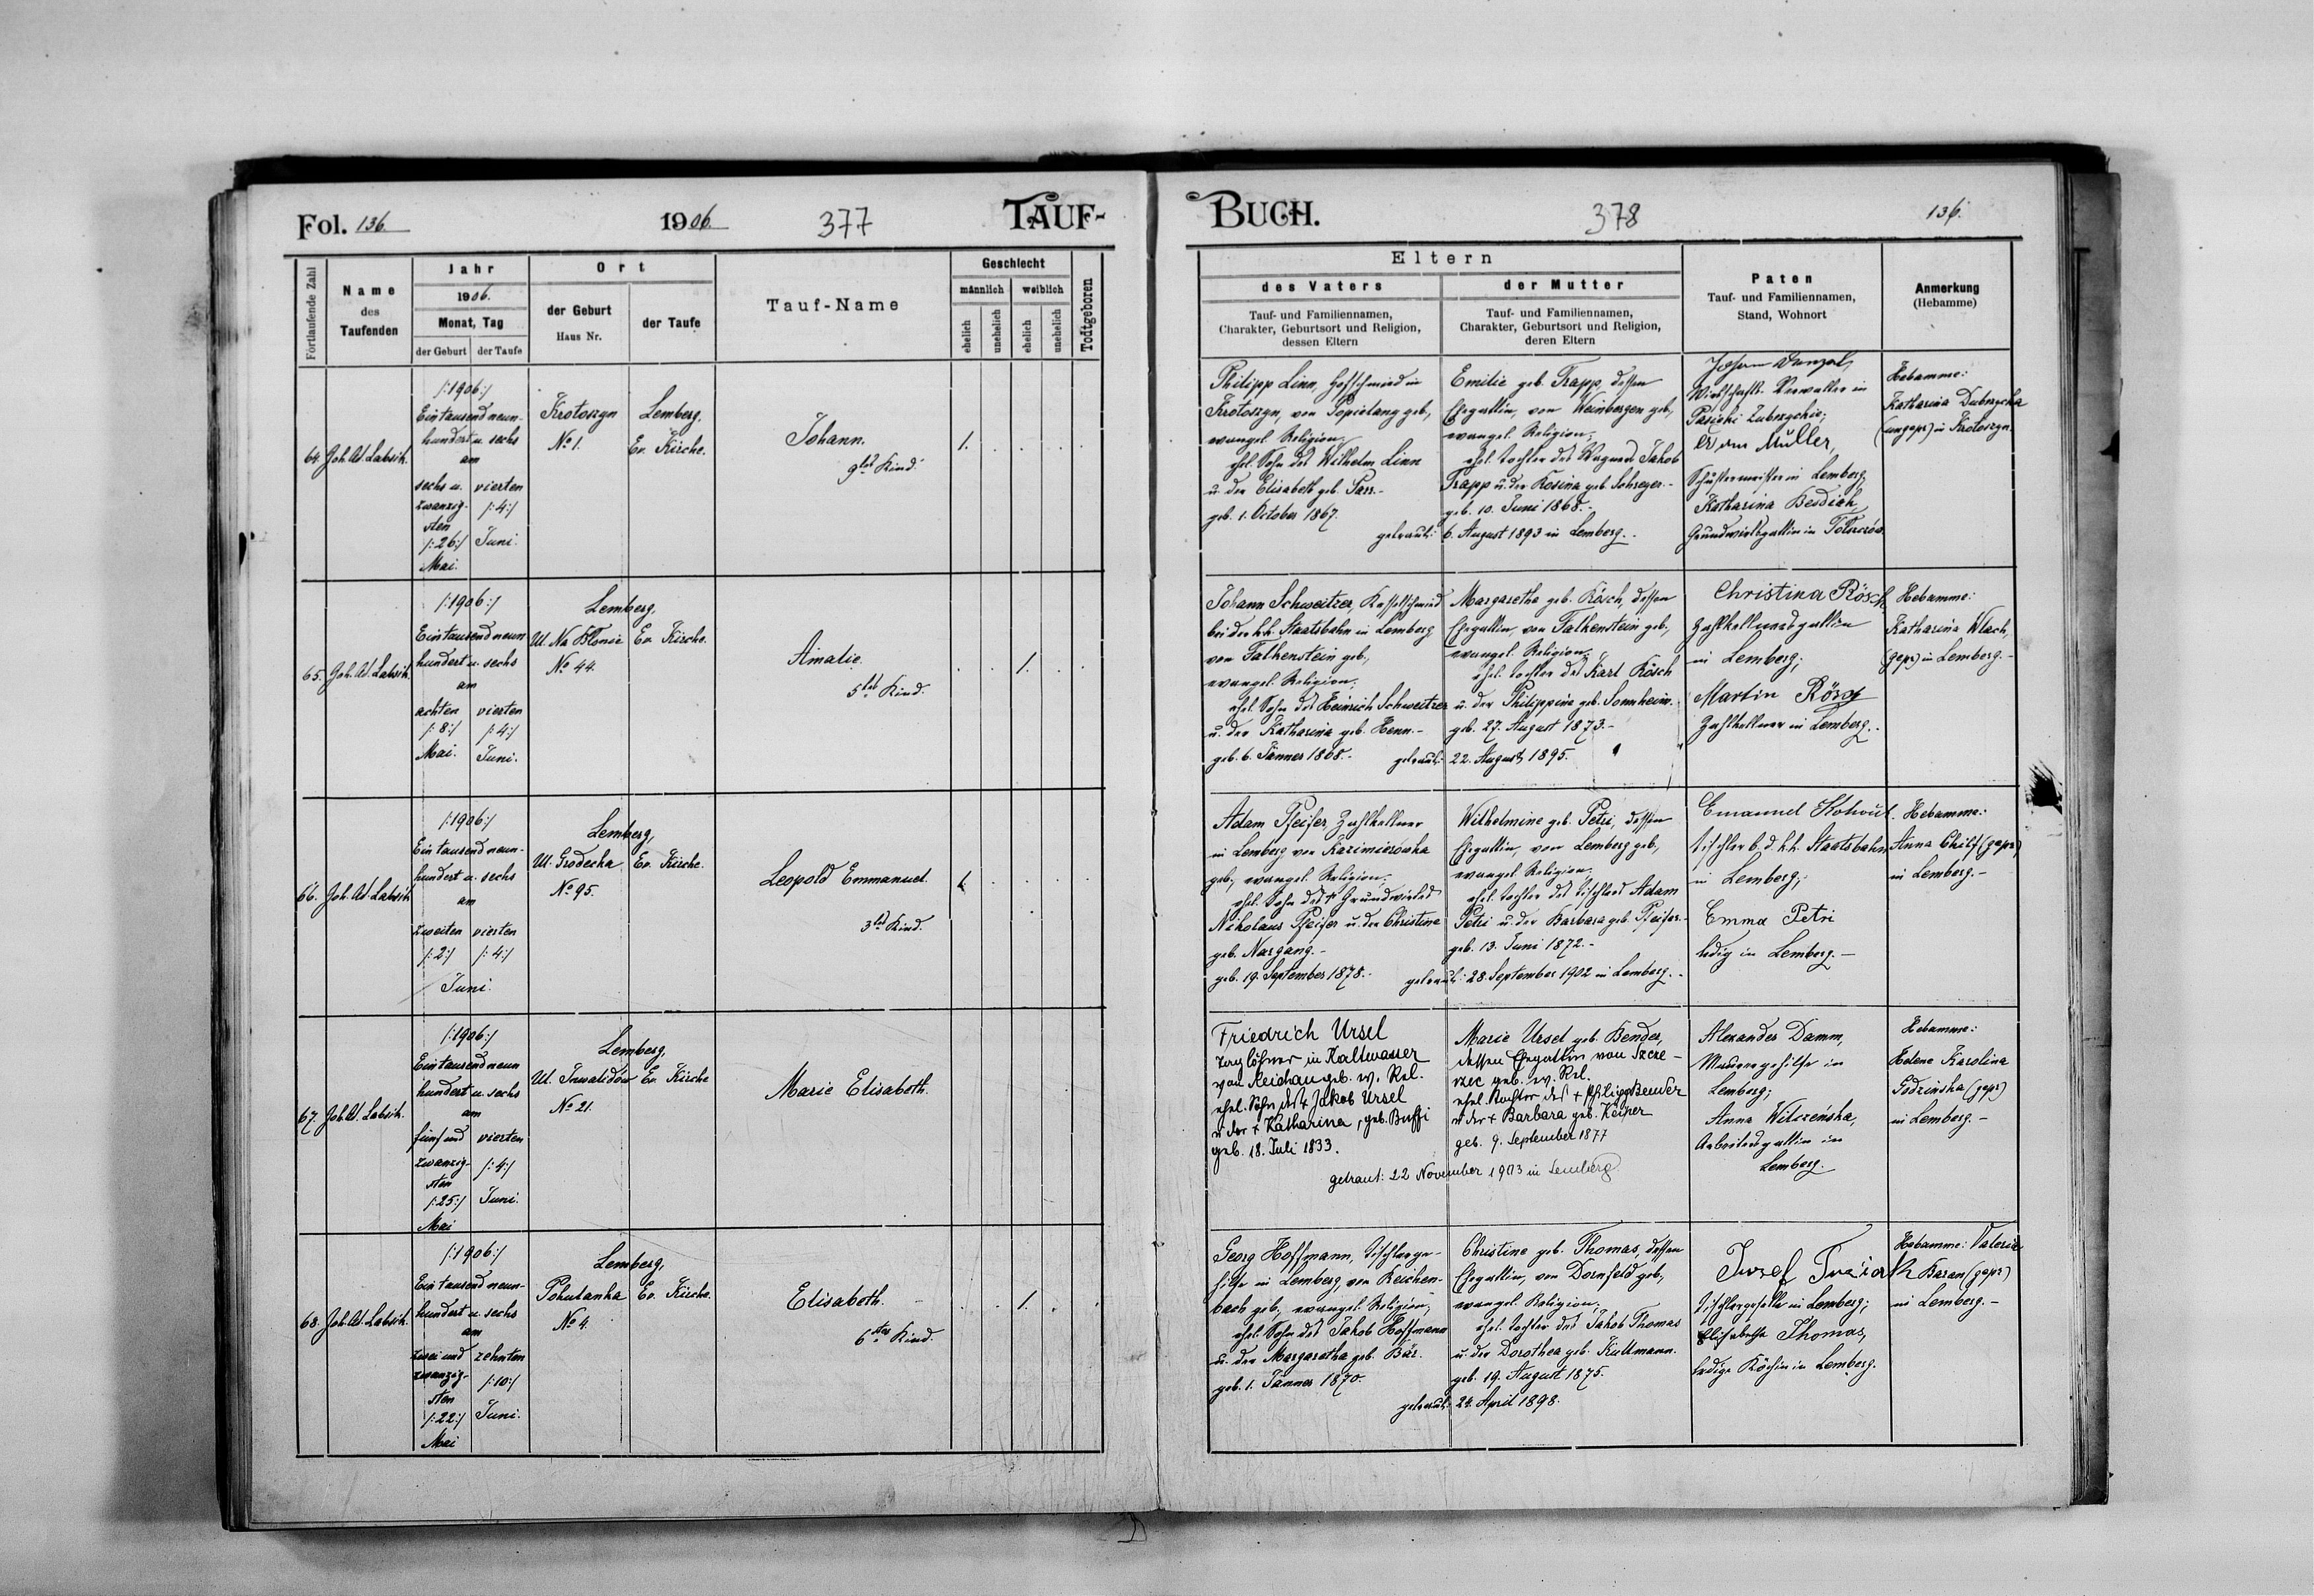 Fol. 136
1906.
377
TAUF-
BUCH.
378
136.
Fortlaufende Zahl
Name
des
Taufenden
Jahr
1906.
Monat, Tag
der Geburt
der Taufe
Ort
der Geburt
Haus Nr.
der Taufe
Tauf-Name
Geschlecht
männlich
weiblich
ehelich
unehelich
ehelich
unehelich
Todtgeboren
Eltern
des Vaters
Tauf- und Familiennamen,
Charakter, Geburtsort und Religion,
dessen Eltern
der Mutter
Tauf- und Familiennamen,
Charakter, Geburtsort und Religion,
deren Eltern
Paten
Tauf- und Familiennamen,
Stand, Wohnort
Anmerkung
(Hebamme)
64.
Joh. Ad. Labsik.
/:1906:/
Eintausend neun-
hundert u. sechs
am
sechs u.
zwanzig-
sten
/:26:/
Mai.
vierten
/:4:/
Juni.
Krotoszyn
No 1.
Lemberg,
Ev. Kirche.
Johann.
9tes Kind.
1.
Philipp Linn, Hofschmied in
Krotoszyn, von Popielany geb.,
evangel. Religion;
ehel. Sohn des Wilhelm Linn
u. der Elisabeth geb.
geb. 1. October 1867.
getraut:
Emilie geb. Trapp, dessen
Ehegattin, von Weinbergen geb.,
evangel. Religion;
ehel. Tochter des Wagners Jakob
Trapp u. der Rosina geb. Schreyer.-
geb. 10. Juni 1868.-
6. August 1893 in Lemberg.
Johann
Wirtschafts-Verwalter in
Pasieki Zubrzyckie;
Müller,
Schustermeister in Lemberg,
Katharina
Grundwirtsgattin in
Hebamme:
Katharina Dubrzycka
(ungepr) in Krotoszyn.
65.
Joh. Ad. Labsik.
/:1906:/
Eintausend neun
hundert u. sechs
am
achten
/:8:/
Mai.
vierten
/:4:/
Juni.
Lemberg,
Ul. Na Błonie
No 44.
Ev. Kirche.
Amalie.
5tes Kind.
1.
Johann Schweitzer, Kesselschmied
bei der k.k. Staatsbahn in Lemberg
von Falkenstein geb.,
evangel. Religion;
ehel. Sohn des Heinrich Schweitzer
u. der Katharina geb. Henn.-
geb. 6. Jänner 1868.-
getraut:
Margaretha geb. Rösch, dessen
Ehegattin, von Falkenstein geb.,
evangel. Religion;
ehel. Tochter des Karl Rösch
u. der Philippina geb. Sonnheim.
geb. 27. August 1873.-
22. August 1895.
Christina Rösch
Zahlkellnersgattin
in Lemberg;
Martin Rösch
Zahlkellner in Lemberg.
Hebamme:
Katharina Wlach,
(gepr) in Lemberg.-
66.
Joh. Ad. Labsik
/:1906:/
Eintausend neun-
hundert u. sechs
am
zweiten
/:2:/
vierten
/:4:/
Juni.
Lemberg,
Ul. Grodecka
No 95.
Ev. Kirche.
Leopold Emmanuel.
3tes Kind.
1.
Adam Pfeifer, Zahlkellner
in Lemberg von Kazimierówka
geb., evangel. Religion;
ehel. Sohn des + Grundwirtes
Nikolaus Pfeifer u. der Christine
geb. Nargang.-
geb. 19. September 1878.-
getraut:
Wilhelmine geb. Petri, dessen
Ehegattin, von Lemberg geb.,
evangel. Religion;
ehel. Tochter des Tischlers Adam
Petri u. der Barbara geb. Pfeifer.-
geb. 13. Juni 1872.-
28. September 1902 in Lemberg.
Emanuel
Tischler b. d. k.k. Staatsbahn
in Lemberg;
Emma Petri
ledig in Lemberg.-
Hebamme:
Anna Chilf (gepr)
in Lemberg.-
67.
Joh. Ad. Labsik.
/:1906:/
Eintausend neun
hundert u. sechs
am
fünf und
zwanzig-
sten
/:25:/
Mai
vierten
/:4:/
Juni.
Lemberg,
Ul. Inwalidów
No 21.
Ev. Kirche
Marie Elisabeth.
Friedrich Ursel
Taglöhner in Kaltwasser
von Reichau geb. ev. Rel.
ehel. Sohn des + Jakob Ursel
u. der + Katharina, geb. Buffi
geb. 18. Juli 1833.
getraut: 22 November 1903 in Lemberg
Marie Ursel geb. Bender,
dessen Ehegattin von Szcze-
rzec geb. ev. Rel.
ehel. Tochter des + Philipp Bender
u. der + Barbara geb. Keiper
geb. 9. September 1877
Alexander Damm,
Maurergehilfe in
Lemberg;
Anna Wilczeńska,
Arbeitersgattin in
Lemberg.
Hebamme:
Helene Karolina
Godzińska (gepr)
in Lemberg.-
68.
Joh. Ad. Labsik.
/:1906:/
Eintausend neun-
hundert u. sechs
am
zwei und
zwanzig-
sten
/:22:/
Mai
zehnten
/:10:/
Juni.
Lemberg,
Pohulanka
No 4.
Ev. Kirche.
Elisabeth.
6tes Kind.
1.
Georg Hoffmann, Tischlerge-
hilfe in Lemberg, von Reichen-
bach geb., evangel. Religion;
ehel. Sohn des Jakob Hoffmann
u. der Margaretha geb. Bär.
geb. 1. Jänner 1870.
getraut:
Christine geb. Thomas, dessen
Ehegattin, von Dornfeld geb.,
evangel. Religion;
ehel. Tochter des Jakob Thomas
u. der Dorothea geb. Kullmann.
geb. 19. August 1875.
24. April 1898.
Tischlergeselle in Lemberg;
Elisabetha Thomas,
ledige Köchin in Lemberg.
Hebamme: Valeria
Baran (gepr)
in Lemberg.-